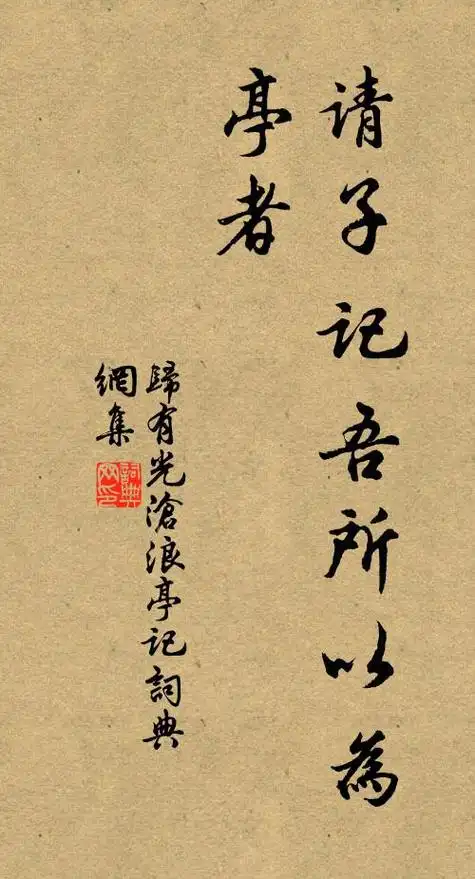 请子记吾所以為
亭者
歸有光滄浪亭记詞典
網集
詞典
网印